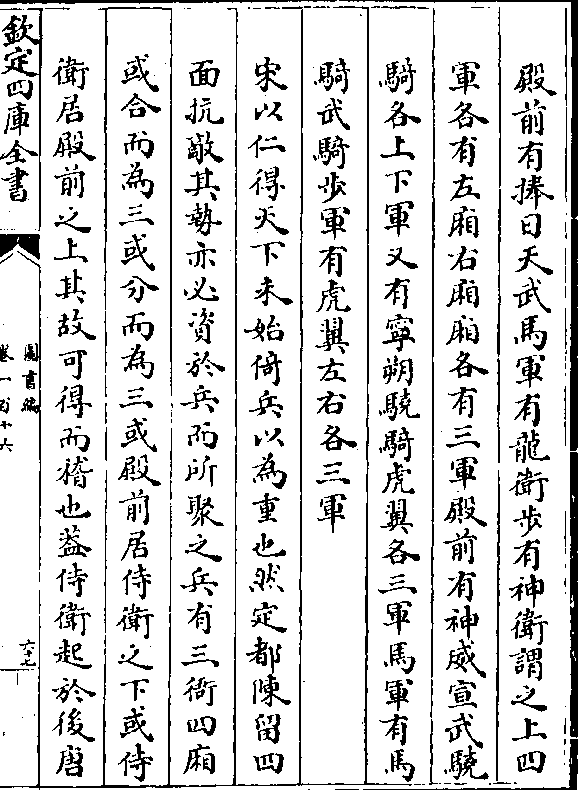 殿前有捧日天武馬軍有龍衛步有神衛謂之上四
軍各有左廂右廂廂各有三軍殿前有神威宣武驍
騎各上下軍又有寧朔驍騎虎翼各三軍馬軍有馬
騎武騎步軍有虎翼左右各三軍
宋以仁得天下未始倚兵以為重也然定都陳留四
面抗敵其勢亦必資於兵而所聚之兵有三衙四廂
或合而為三或分而為三或殿前居侍衛之下或侍
衛居殿前之上其故可得而稽也蓋侍衛起於後唐
欽定四庫全書
圖書編
卷一百十六
六十七